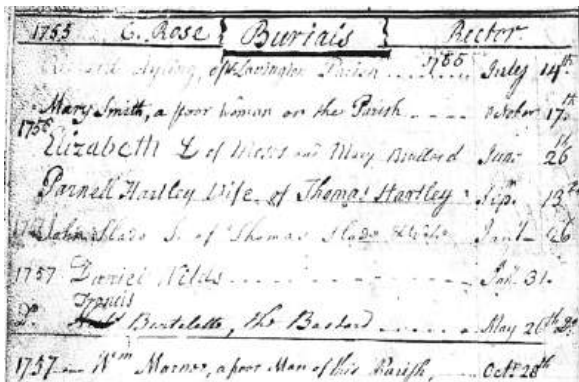 1755 C. Rose Burials Rector.
Ayling, of Lavington Parish 1755 July 14th
Mary Smith, a poor woman on the Parish October 17th
1756
Elizabeth D of Moses and Mary Bullard June 26th
Parnell Hartley Wife of Thomas Hartley 13th
John Slade S. of Thomas Slade & Wife Jan 26
1757 Daniel Nilds Jan 31.
Francis
Do. Bartelotte, the Bastard May 26th Do
1757 Wm Marner, a poor Man of this Parish Octr 28th